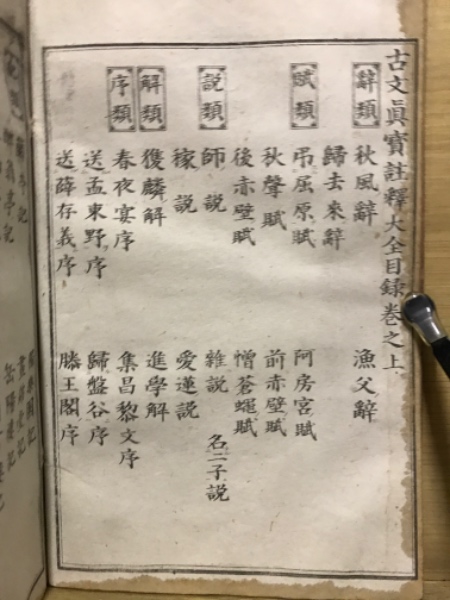 古文眞寶註釋大全目録卷之上
辭類
秋風辭　漁父辭
歸去來辭
賦類
吊屈原賦　阿房宮賦
秋聲賦　前赤壁賦
後赤壁賦　憎蒼蠅賦
説類
師説　雜説　名二子説
稼説　愛蓮説
解類
獲麟解　進學解
序類
春夜宴序　集昌黎文序
送孟東野序　歸盤谷序
送薛存義序　滕王閣序